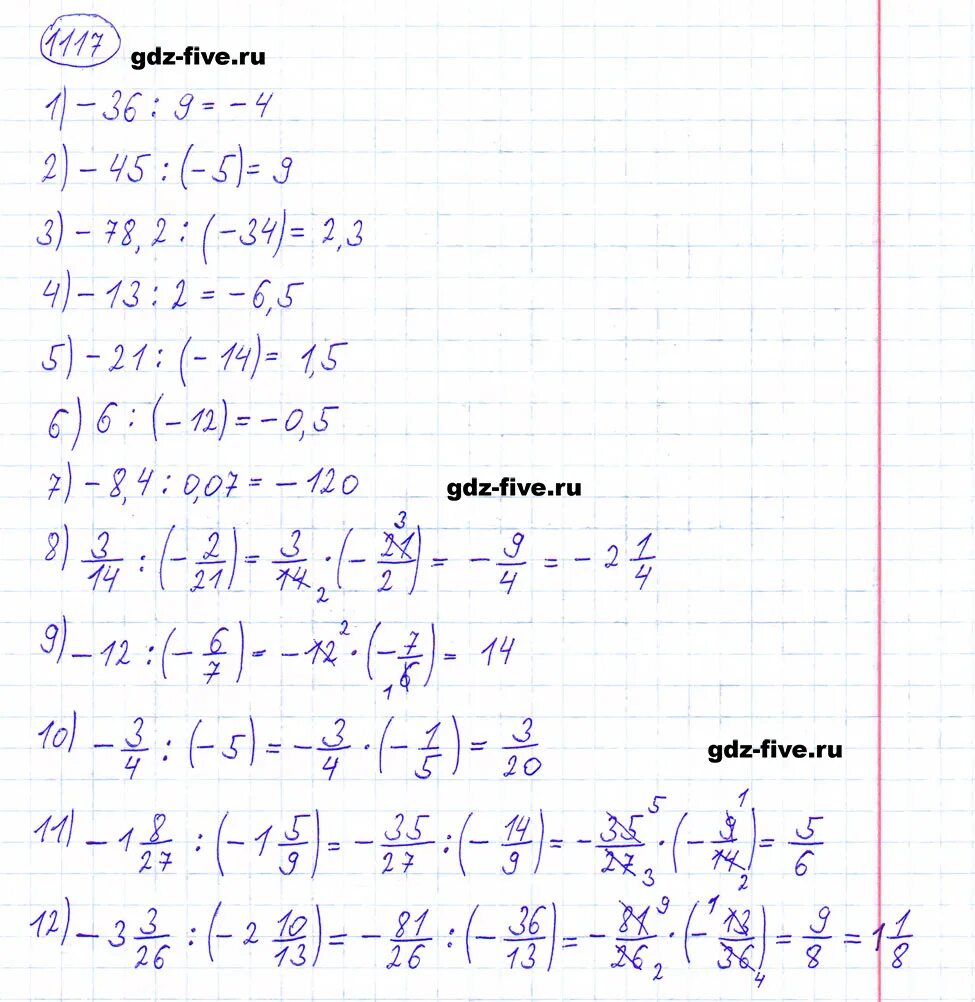 1117
gdz-five.ru
1) - 36 : 9 = - 4
2) - 45 : (- 5) = 9
3) - 78,2 : (- 34) = 2,3
4) - 13 : 2 = - 6,5
5) - 21 : (- 14) = 1,5
6) 6 : (- 12) = - 0,5
7) - 8,4 : 0,07 = - 120
gdz-five.ru
8) 3/14 : (- 2/21) = 3/14 2 · (- 21 3/2) = - 9/4 = - 2 1/4
9) - 12 : (- 6/7) = - 12 2 · (- 7/6 1) = 14
10) - 3/4 : (- 5) = - 3/4 · (- 1/5) = 3/20
gdz-five.ru
11) - 1 8/27 : (- 1 5/9) = - 35/27 : (- 14/9) = - 35 5/27 3 · (- 9 1/14 2) = 5/6
12) - 3 3/26 : (- 2 10/13) = - 81/26 : (- 36/13) = - 81 9/26 2 · (- 1 13/36 4) = 9/8 = 1 1/8